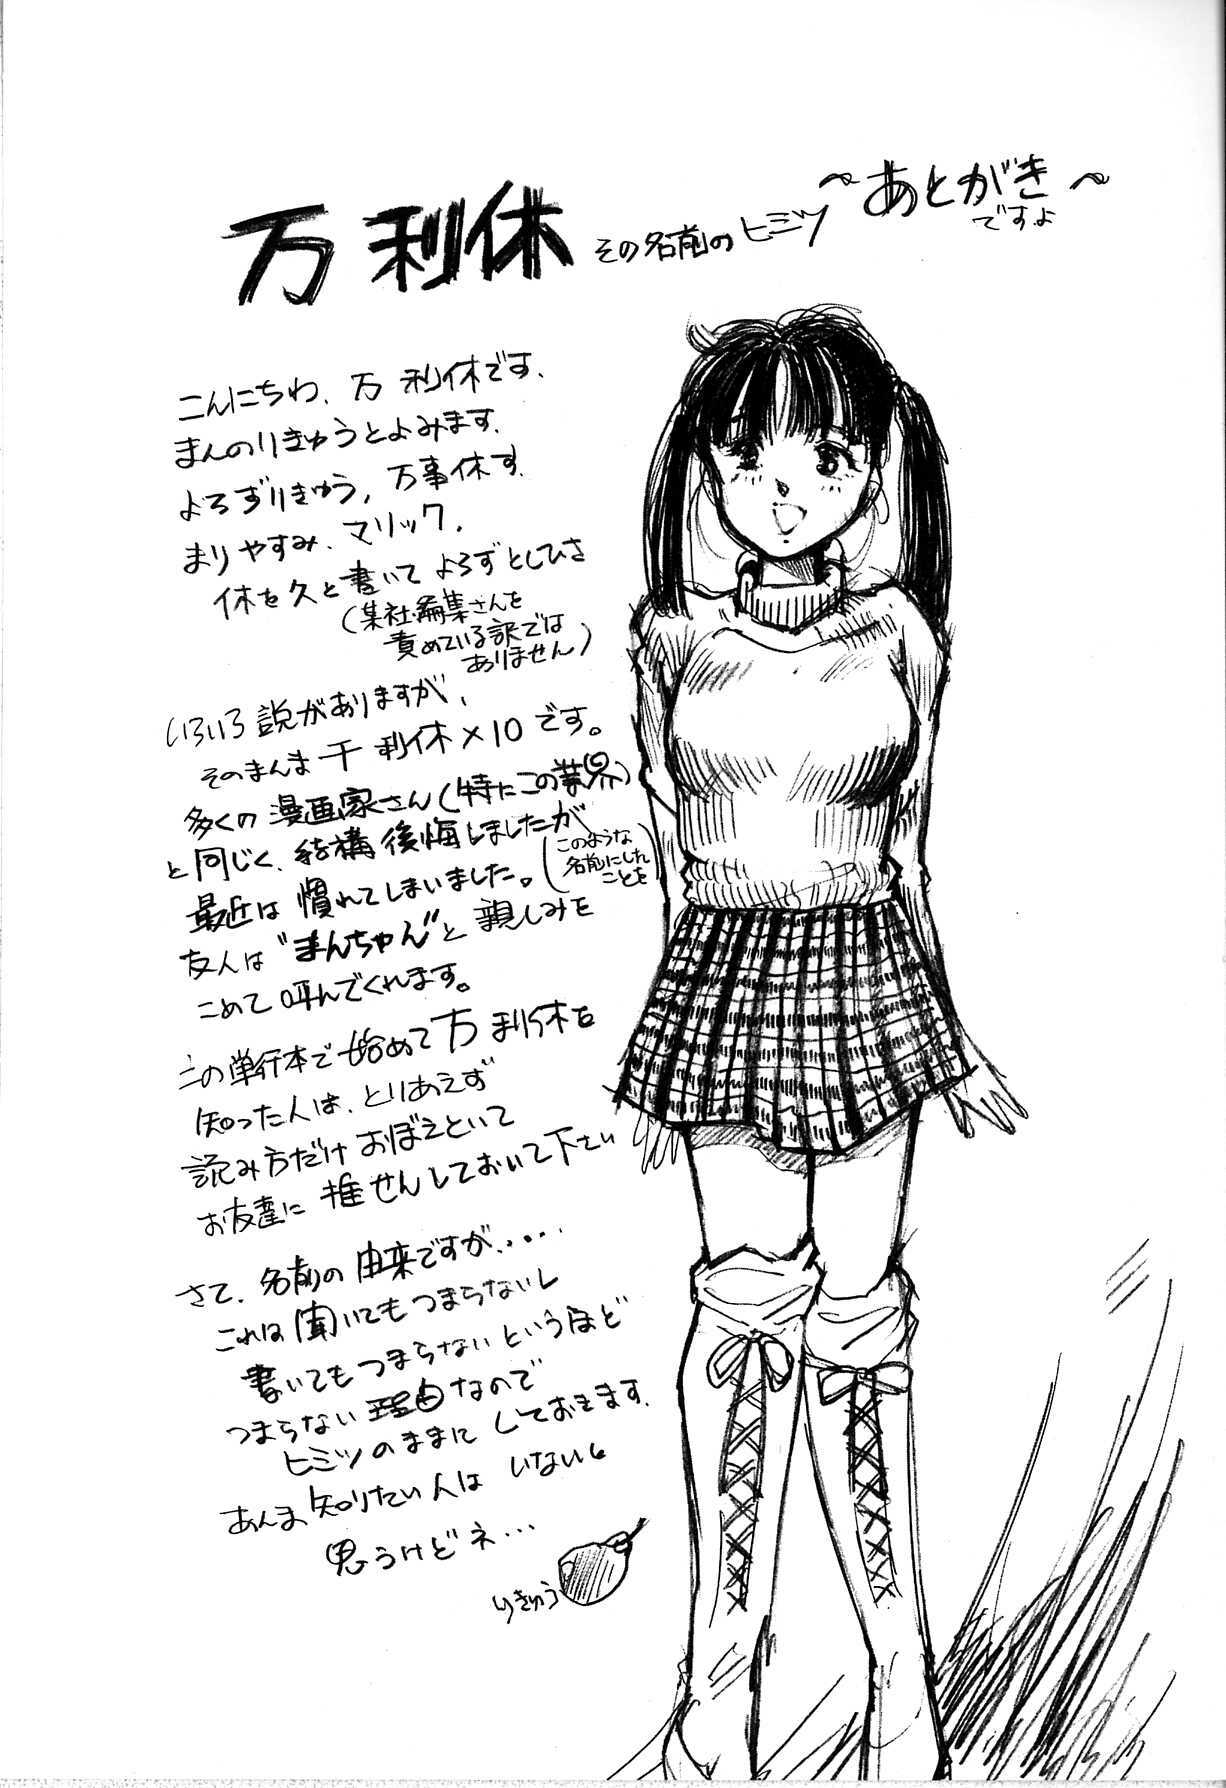 万利休 その名前のヒミツ 〜あとがき〜
ですよ
こんにちわ、万 利休です、
まんのりきゅうとよみます、
よろずりきゅう、万事休す、
まりやすみ、マリック、
休を久と書いて よろずとしひさ
(某社編集さんを
責めている訳では
ありません)
いろいろ説がありますが、
そのまんま千 利休×10です。
多くの漫画家さん(特にこの業界)
と同じく、結構後悔しましたが
(このような
名前にした
ことを)
最近は慣れてしまいました。
友人は"まんちゃん"と親しみを
こめて呼んでくれます。
この単行本で始めて万 利休を
知った人は、とりあえず
読み方だけおぼえといて
お友達に推せんしておいて下さい
さて、名前の由来ですが、....
これは聞いてもつまらないし
書いてもつまらないというほど
つまらない理由なので
ヒミツのままにしておきます、
あんま知りたい人は いないと
思うけどネ...
りきゅう